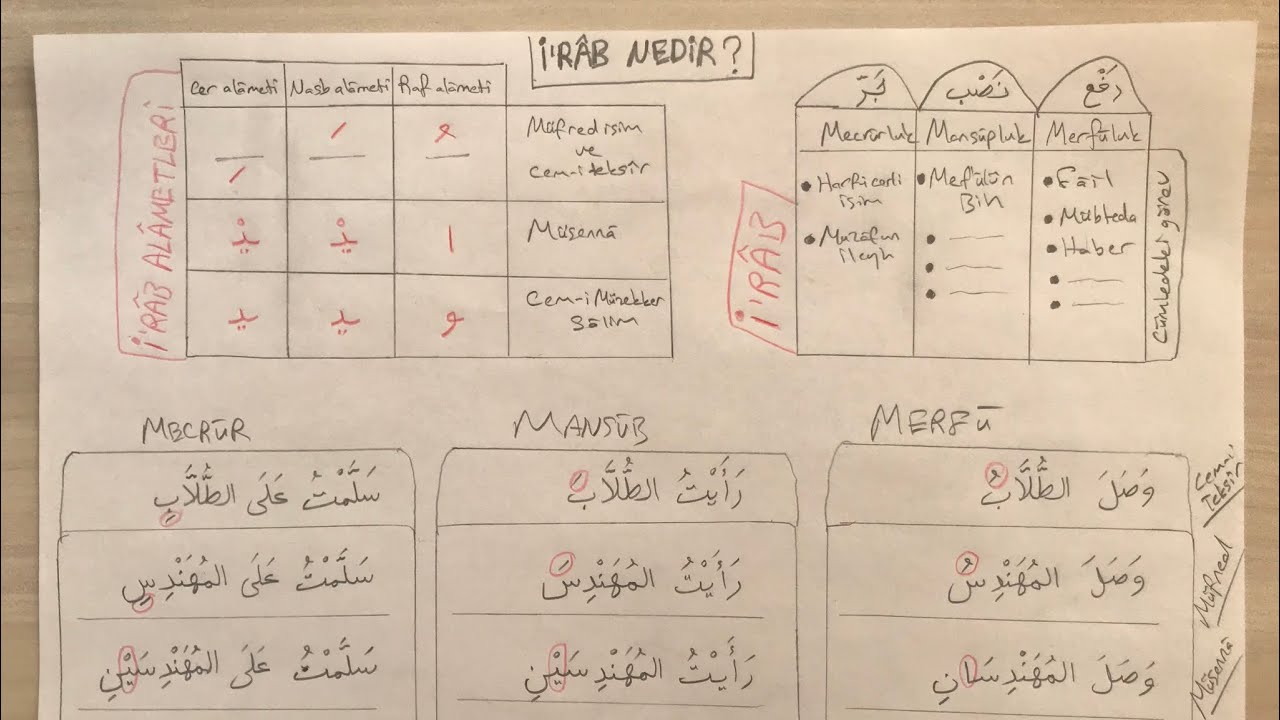 İ'RÂB NEDİR?
İ'RÂB ALÂMETLERİ
Cer alâmeti Nasb alâmeti Raf alâmeti
Müfred isim
ve
Cem-i teksîr
Müsennâ
ـَيْـ ـَيْـ ا
Cem-i Müzekker
Sâlim
ـِيـ ـِيـ و
İ'RÂB
جَرّ نَصْب رَفْع
Mecrûrluk Mansûpluk Merfûluk
• Harficerli
isim
• Muzâfun
ileyh
• Mef'ûlün
Bih
• Fâil
• Mübteda
• Haber
Cümledeki görev
MECRÛR MANSÛB MERFÛ
سَلَّمْتُ عَلَى الطُّلَّابِ
رَأَيْتُ الطُّلَّابَ
وَصَلَ الطُّلَّابُ
Cem-i
Teksîr
سَلَّمْتُ عَلَى المُهَنْدِسِ
رَأَيْتُ المُهَنْدِسَ
وَصَلَ المُهَنْدِسُ
Müfred
سَلَّمْتُ عَلَى المُهَنْدِسَيْنِ
رَأَيْتُ المُهَنْدِسَيْنِ
وَصَلَ المُهَنْدِسَانِ
Müsennâ